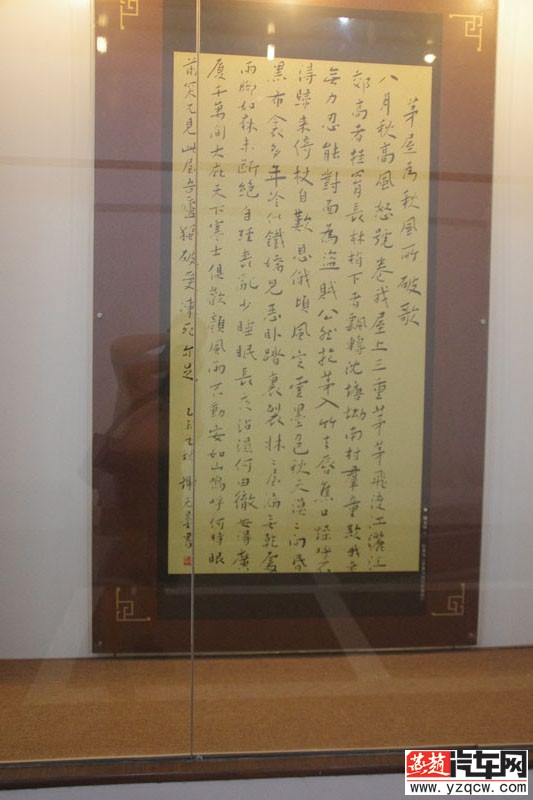 茅屋為秋風所破歌
八月秋高風怒號卷我屋上三重茅茅飛渡江灑江
郊高者挂罥長林梢下者飄轉沈塘坳南村羣童欺我老
無力忍能對面為盜賊公然抱茅入竹去唇焦口燥呼不
得歸來倚杖自歎息俄頃風定雲墨色秋天漠〻向昏
黑布衾多年冷似鐵嬌兒惡卧踏裏裂床〻屋漏無乾處
雨腳如麻未斷絕自經喪亂少睡眠長夜沾濕何由徹安得廣
厦千萬間大庇天下寒士俱歡顏風雨不動安如山嗚呼何時眼
前突兀見此屋吾廬獨破受凍死亦足
燕趙汽车网
www.yzqcw.com